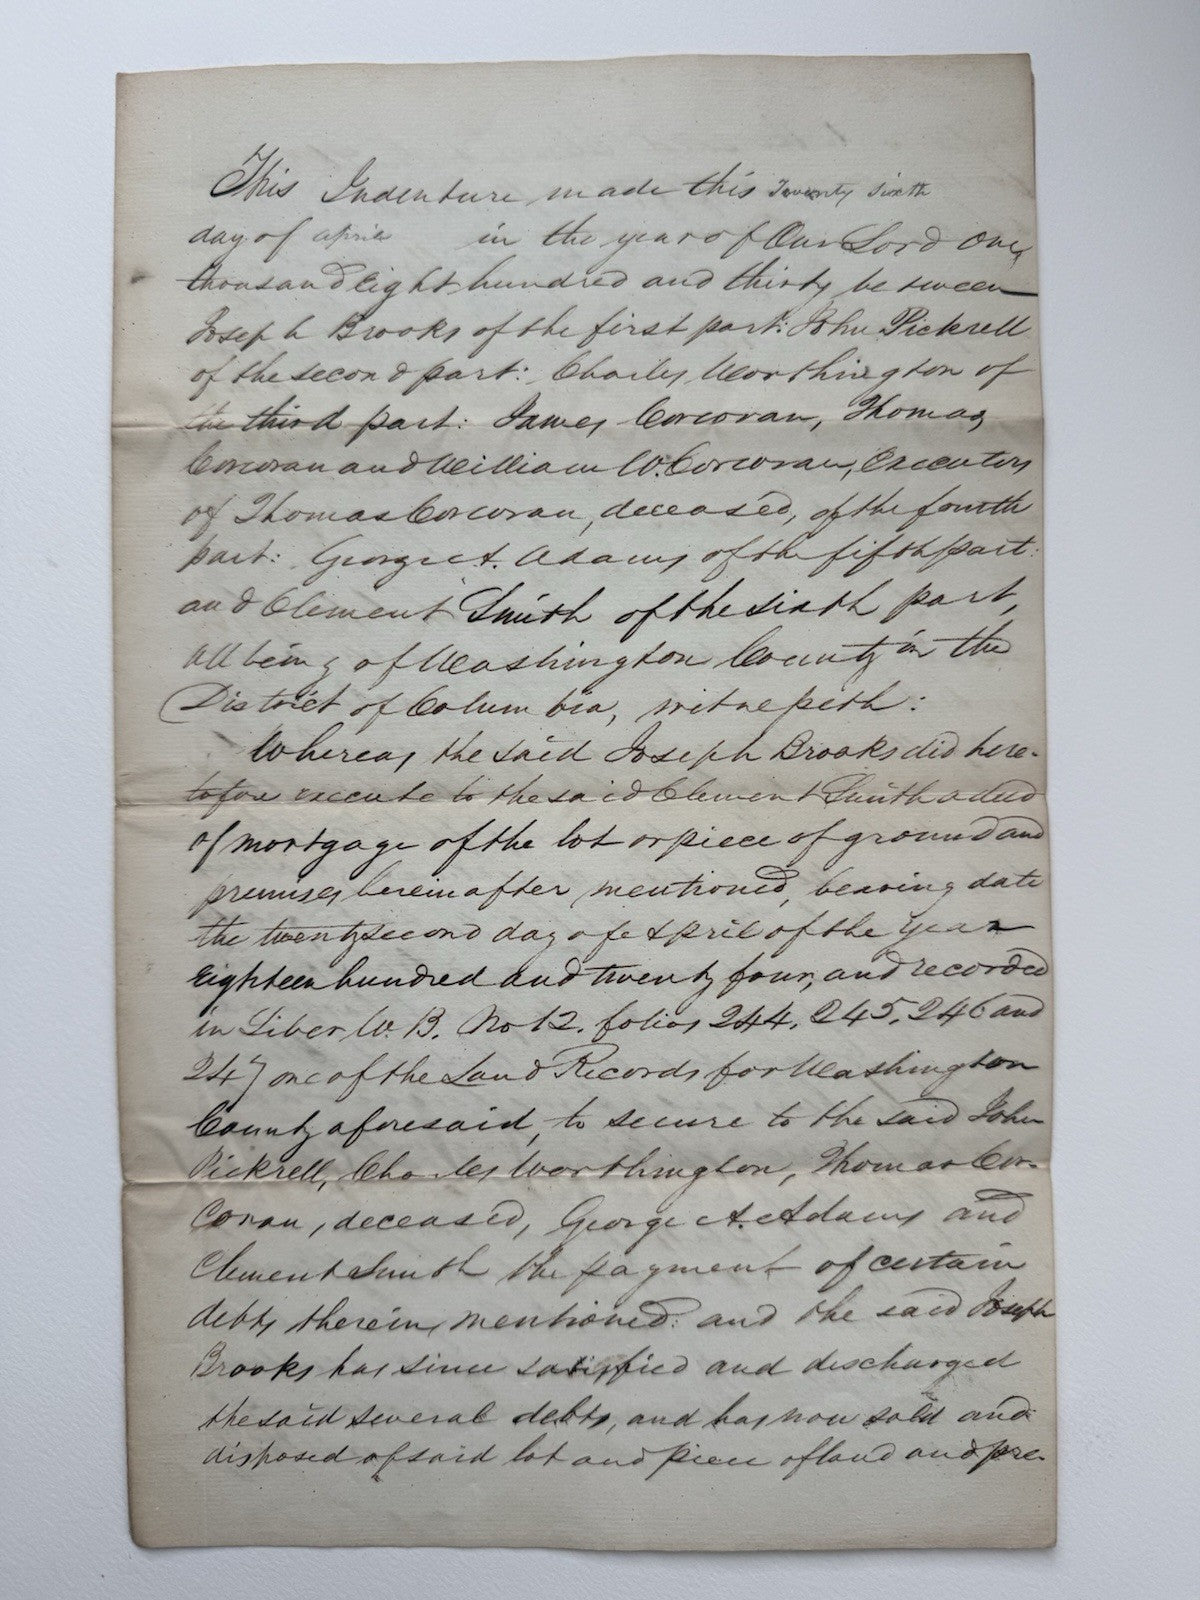 This Indenture made this Twenty sixth
day of april in the year of Our Lord One
thousand eight hundred and thirty between
Joseph Brooks of the first part: John Pickrell
of the second part: Charles Worthington of
the third part: James Corcoran, Thomas
Corcoran and William W. Corcoran, Executors
of Thomas Corcoran, deceased, of the fourth
part: George A. Adams of the fifth part:
and Clement Smith of the sixth part,
all being of Washington County in the
District of Columbia, witnesseth:
Whereas the said Joseph Brooks did here-
tofore execute to the said Clement Smith a deed
of mortgage of the lot or piece of ground and
premises hereinafter mentioned, bearing date
the twenty second day of April of the year
eighteen hundred and twenty four, and recorded
in Liber W. B. No 12. folios 244, 245, 246 and
247 one of the Land Records for Washington
County aforesaid, to secure to the said John
Pickrell, Charles Worthington, Thomas Cor-
coran, deceased, George A. Adams and
Clement Smith the payment of certain
debts therein mentioned: and the said Joseph
Brooks has since satisfied and discharged
the said several debts, and has now sold and
disposed of said lot and piece of land and pre-